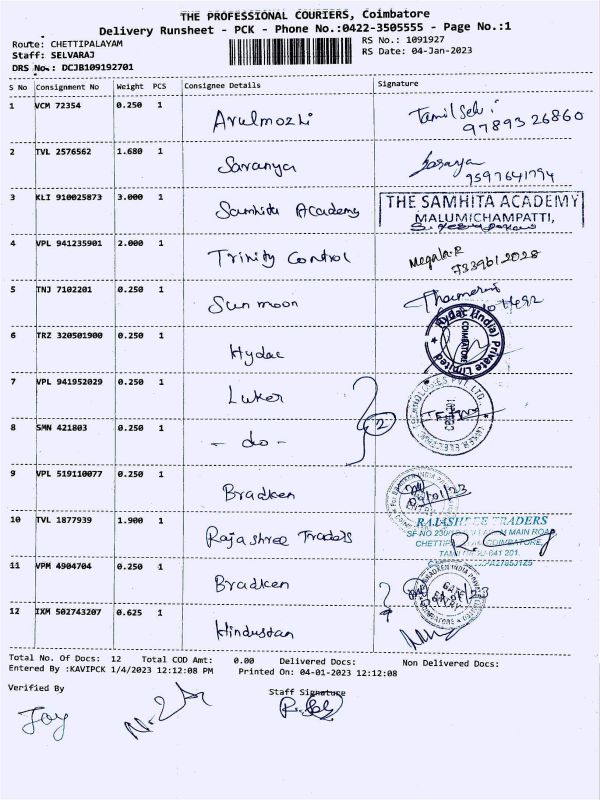 THE PROFESSIONAL COURIERS, Coimbatore
Delivery Runsheet - PCK - Phone No.:0422-3505555 - Page No.:1
Route: CHETTIPALAYAM RS No.: 1091927
Staff: SELVARAJ RS Date: 04-Jan-2023
DRS No.: DCJB109192701
S No Consignment No Weight PCS Consignee Details Signature
1 VCM 72354 0.250 1 Arulmozhi
97893 26860
2 TVL 2576562 1.680 1 Saranya
9597641794
3 KLI 910025873 3.000 1 Samhita Academy THE SAMHITA ACADEMY
MALUMICHAMPATTI,
4 VPL 941235901 2.000 1 Trinity Control Megala.R
5 TNJ 7102201 0.250 1 Sun moon
6 TRZ 320501900 0.250 1 Hydac Hydac (India) Private Limited
COIMBATORE
7 VPL 941952029 0.250 1 Luker
2
8 SMN 421803 0.250 1 - do -
9 VPL 519110077 0.250 1 Bradken
10 TVL 1877939 1.900 1 Rajashree Traders RAJASHREE TRADERS
11 VPM 4904704 0.250 1 Bradken
12 IXM 502743207 0.625 1 Hindustan
Total No. Of Docs: 12 Total COD Amt: 0.00 Delivered Docs: Non Delivered Docs:
Entered By :KAVIPCK 1/4/2023 12:12:08 PM Printed On: 04-01-2023 12:12:08
Verified By Staff Signature
Joy